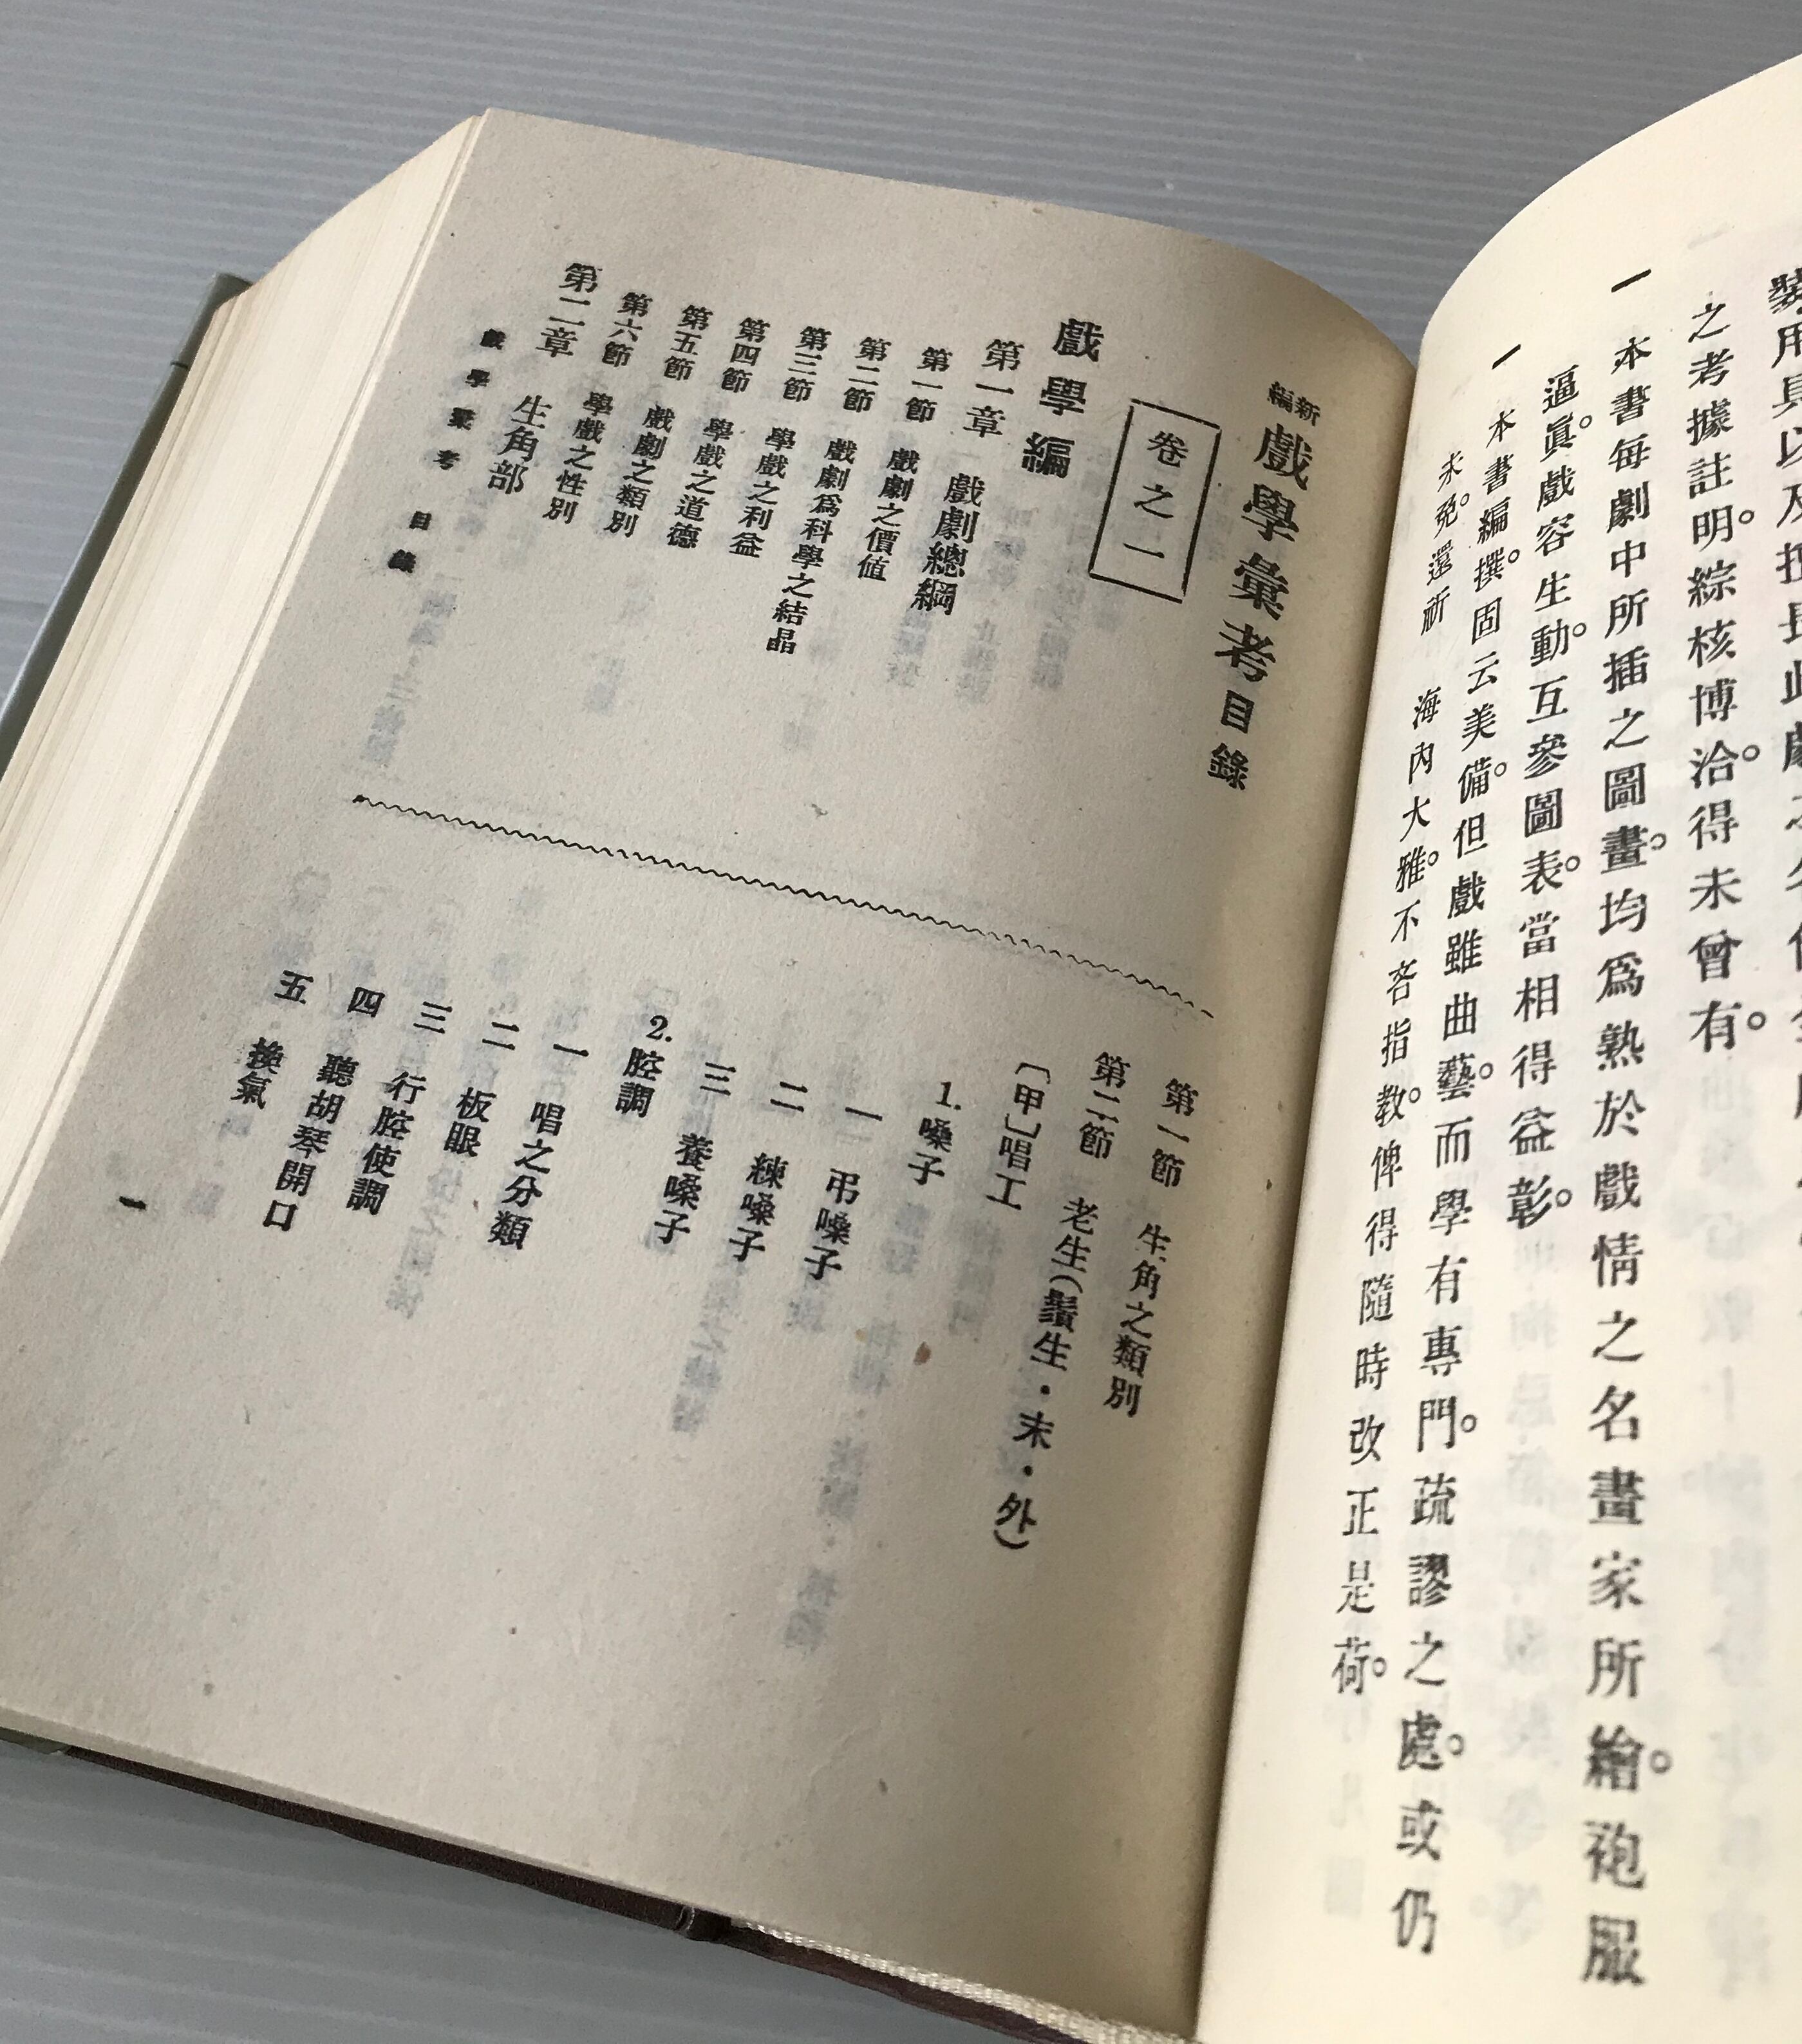 之考據註明。綜核博洽。得未曾有。
一 本書每劇中所插之圖畫。均爲熟於戲情之名畫家所繪。袍服
逼眞。戲容生動。互參圖表。當相得益彰。
一 本書編撰。固云美備。但戲雖曲藝。而學有專門。疏謬之處。或仍
未免。還祈 海內大雅。不吝指教。俾得隨時改正是荷。
新編 戲學彙考目錄
卷之一
戲學編
第一章 戲劇總綱
第一節 戲劇之價値
第二節 戲劇爲科學之結晶
第三節 學戲之利益
第四節 學戲之道德
第五節 戲劇之類別
第六節 學戲之性別
第二章 生角部
第一節 生角之類別
第二節 老生(鬚生・末・外)
〔甲〕唱工
1.嗓子
一 弔嗓子
二 練嗓子
三 養嗓子
2.腔調
一 唱之分類
二 板眼
三 行腔使調
四 聽胡琴開口
五 換氣
戲學彙考 目錄
一